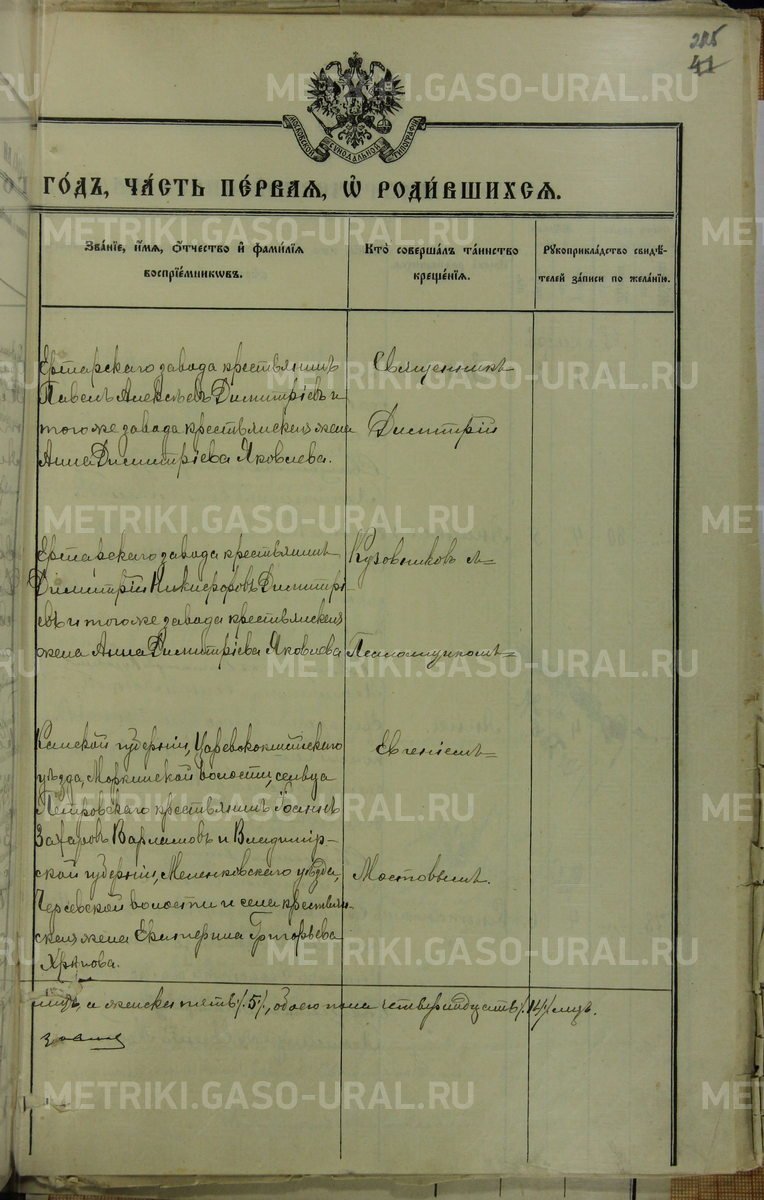 285
41
МОСКОВСКОЙ СѴНОДАЛЬНОЙ ТИПОГРАФІИ
METRIKI.GASO-URAL.RU
ГО́ДЪ, ЧА́СТЬ ПЕ́РВАѦ, Ѡ҆ РОДИ́ВШИХСѦ.
Зва́нїе, и҆́мѧ, ѻ҆́тчество и҆ фами́лїѧ
воспрїе́мникѡвъ.
Кто̀ соверша́лъ та́инство
креще́нїѧ.
Рꙋкоприкла́дство свидѣ́-
телей за́писи по жела́нїю.
Ертарскаго завода крестьянинъ
Павелъ Алексѣевъ Димитріевъ и
тогоже завода крестьянская жена
Анна Димитріева Яковлева.
Священникъ
Димитрій
Ертарскаго завода крестьянинъ
Димитрій Никифоровъ Димитрі-
евъ и тогоже завода крестьянская
жена Анна Димитріева Яковлева
Кузовниковъ съ
Псаломщикомъ
губерніи, Царевококшайскаго
уѣзда, Моркинской волости, сельца
Петровскаго крестьянинъ Іоаннъ
Захаровъ Варламовъ и Владимір-
ской губерніи, Меленковскаго уѣзда,
волости и села крестьян-
ская жена Екатерина Григорьева
Евгеніемъ
Мостовымъ.
а женска пять /5/, обоего пола четырнадцать /14/ лицъ.
METRIKI.GASO-URAL.RU